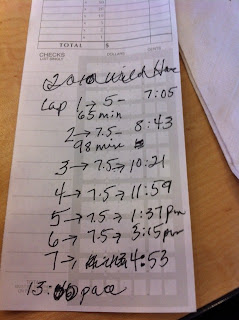 TOTAL $
CHECKS DOLLARS CENTS
LIST SINGLY
2010 Wild Hare
Lap 1 → 5 - 7:05
65 min
2 → 7.5 - 8:43
98 min
3 → 7.5 → 10:21
4 → 7.5 → 11:59
5 → 7.5 → 1:37 pm
6 → 7.5 → 3:15 pm
7 → 4:53
pace